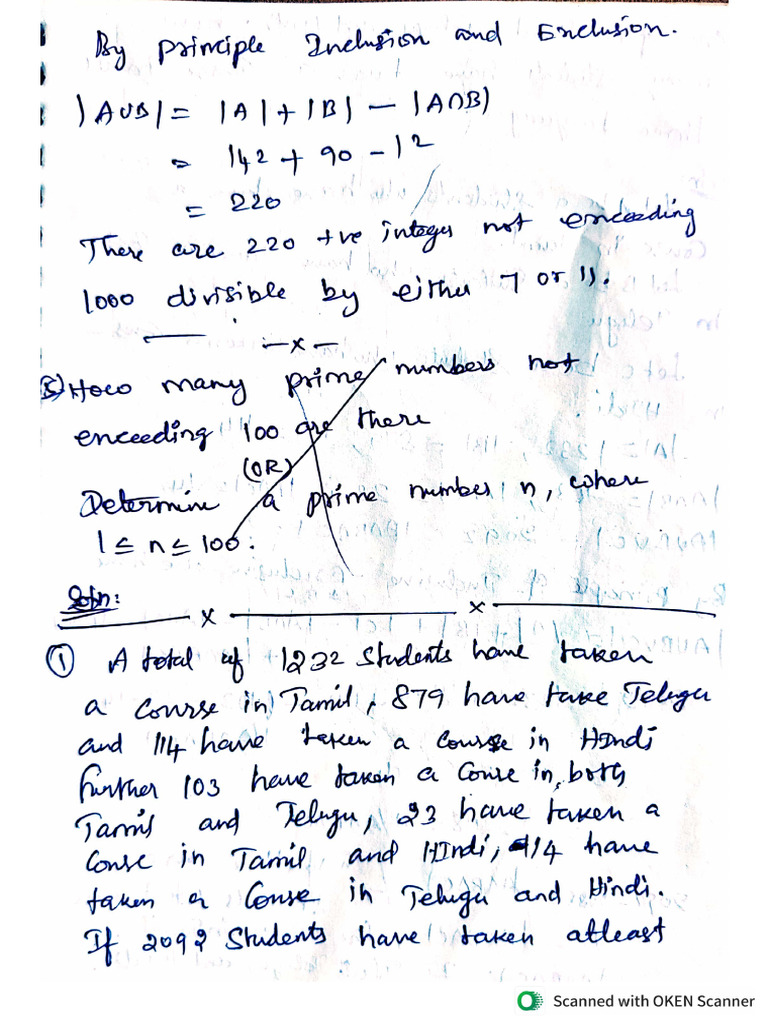 By principle Inclusion and Exclusion.
|A∪B| = |A| + |B| - |A∩B)
= 142 + 90 - 12
= 220
There are 220 +ve integer not enceeding
1000 divisible by either 7 or 11.
— x —
5) How many prime numbers not
enceeding 100 are there
(OR)
Determine a prime number n, where
1 ≤ n ≤ 100.
Soln:
x x
① A total of 1232 students have taken
a course in Tamil, 879 have take Telugu
and 114 have taken a course in Hindi
further 103 have taken a Couse in both
Tamil and Telugu, 23 have taken a
Couse in Tamil and HIndi, 14 have
taken a Couse in Telugu and Hindi.
If 2092 Students have taken atleast
Scanned with OKEN Scanner